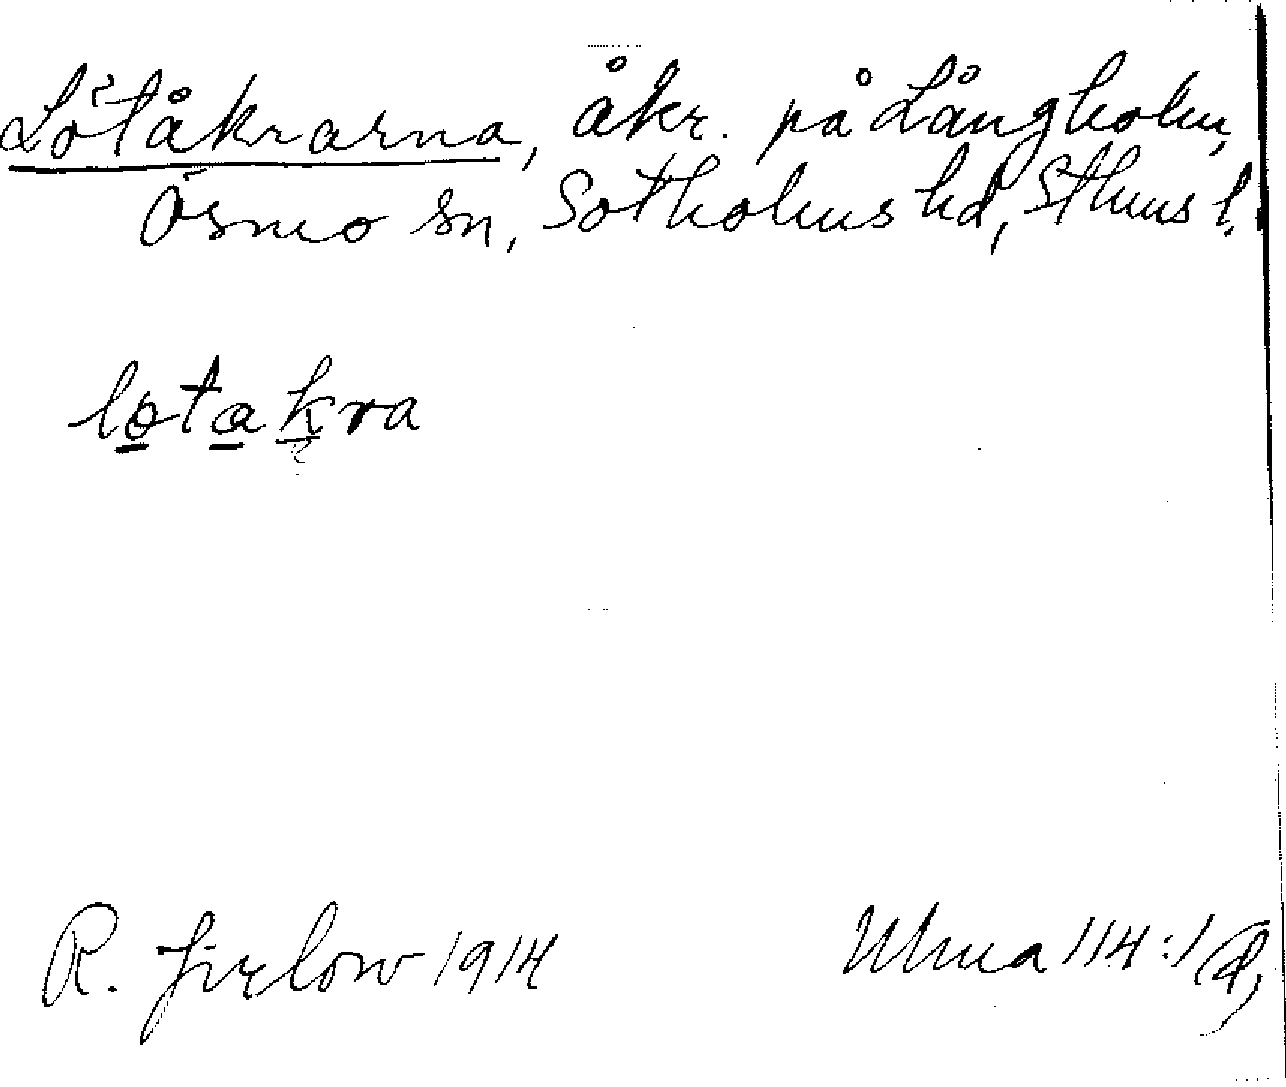 Lötåkrarna, åkr. på Långholm,
Ösmo sn, Sotholms hd, Sthms l.
lotakra
R. Jirlow 1914 Ulma 114:1